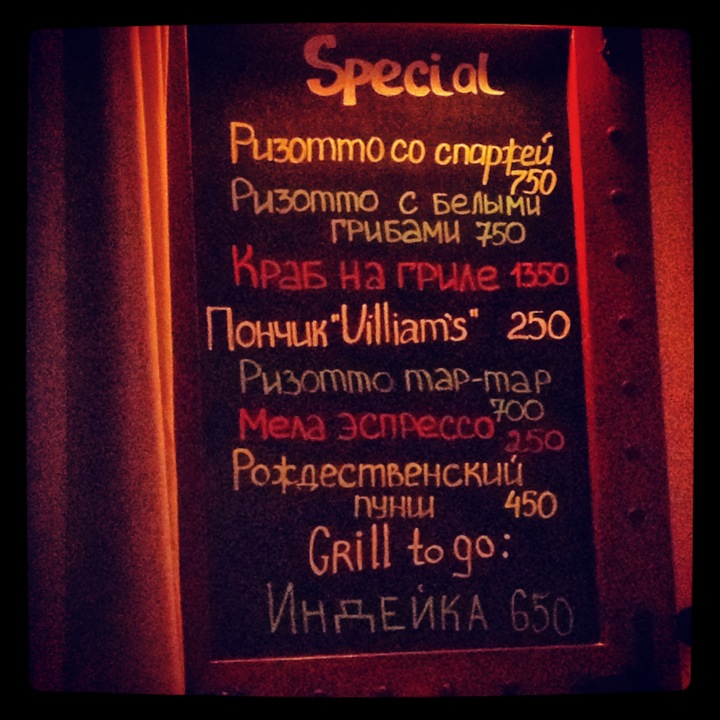 Special
Ризотто со спаржей
750
Ризотто с белыми
грибами 750
Краб на гриле 1350
Пончик "Uilliam's" 250
Ризотто тар-тар
700
Мела эспрессо 250
Рождественский
пунш 450
Grill to go:
Индейка 650